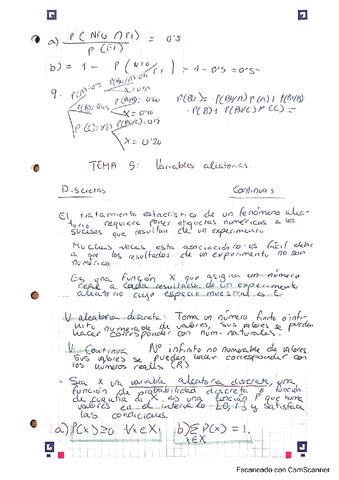 a) P(N¹⁰ ∩ F1) / P(F1) = 0'5
b) = 1 - P(N¹⁰ / F1) = 1 - 0'5 = 0'5
9.
P(A)=0'5
P(B)=
P(C)=
X=0'20
P(Bu) = P(Bu/A) P(A) + P(Bu/B)
· P(B) + P(Bu/C) P(C) =
TEMA 5: Variables aleatorias.
Discretas Continuas
El tratamiento estadístico de un fenómeno alea-
torio requiere poner etiquetas numéricas a los
sucesos que resultan de un experimento.
Muchas veces esta asociación no es fácil debido
a que los resultados de un experimento no son
numéricos.
Es una función X que asigna un número
real a cada resultado de un experimento
aleatorio cuyo espacio muestral es E.
V. aleatoria discreta: Toma un número finito o infi-
nito numerable de valores, sus valores se pueden
hacer corresponder con num. naturales.
V. Continua Nº infinito no numerable de valores.
Sus valores se pueden hacer corresponder con
los números reales (R)
Sea X una variable aleatoria discreta, una
función de probabilidad discreta o función
de cuantía di X es una función P que toma
valores en el intervalo [0,1] y satisface
las condiciones.
a) P(x) ≥ 0 ∀x∈X b) ∑ P(x) = 1.
x∈X
Escaneado con CamScanner